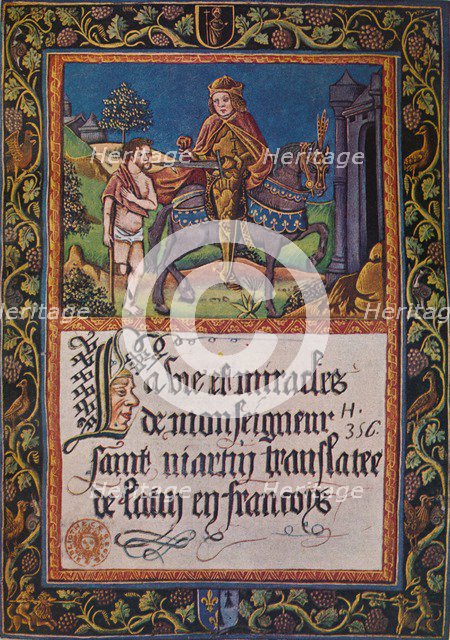 Heritage Heritage
Heritage Heritage
La vie et miracles
de monseigneur
H.
356.
saint martin translatee
de latin en francois
Heritage Heritage